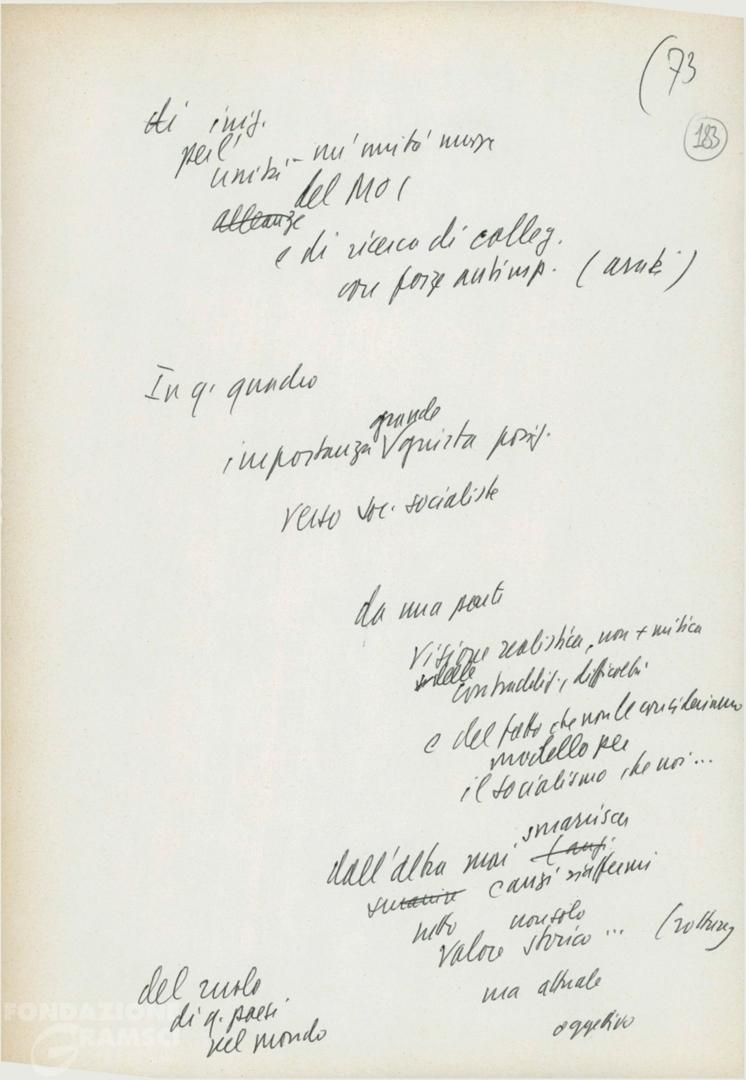 (73
183
di iniz.
per l'
unità - un'unità nuova
del MOI
alleanze
e di ricerca di colleg.
con forze antimp. (arabi)
In q. quadro
grande
importanza giusta posiz.
verso soc. socialiste
da una parte
Visione realistica, non + mitica
delle
contraddiz., difficoltà
e del fatto che non le consideriamo
modello per
il socialismo che noi...
dall'altra mai smarrisca
(anzi
smarrire e anzi riaffermi
netto non solo
Valore storico ... (rottura)
ma attuale
oggettivo
del ruolo
di q. paesi
nel mondo
FONDAZIONE
GRAMSCI